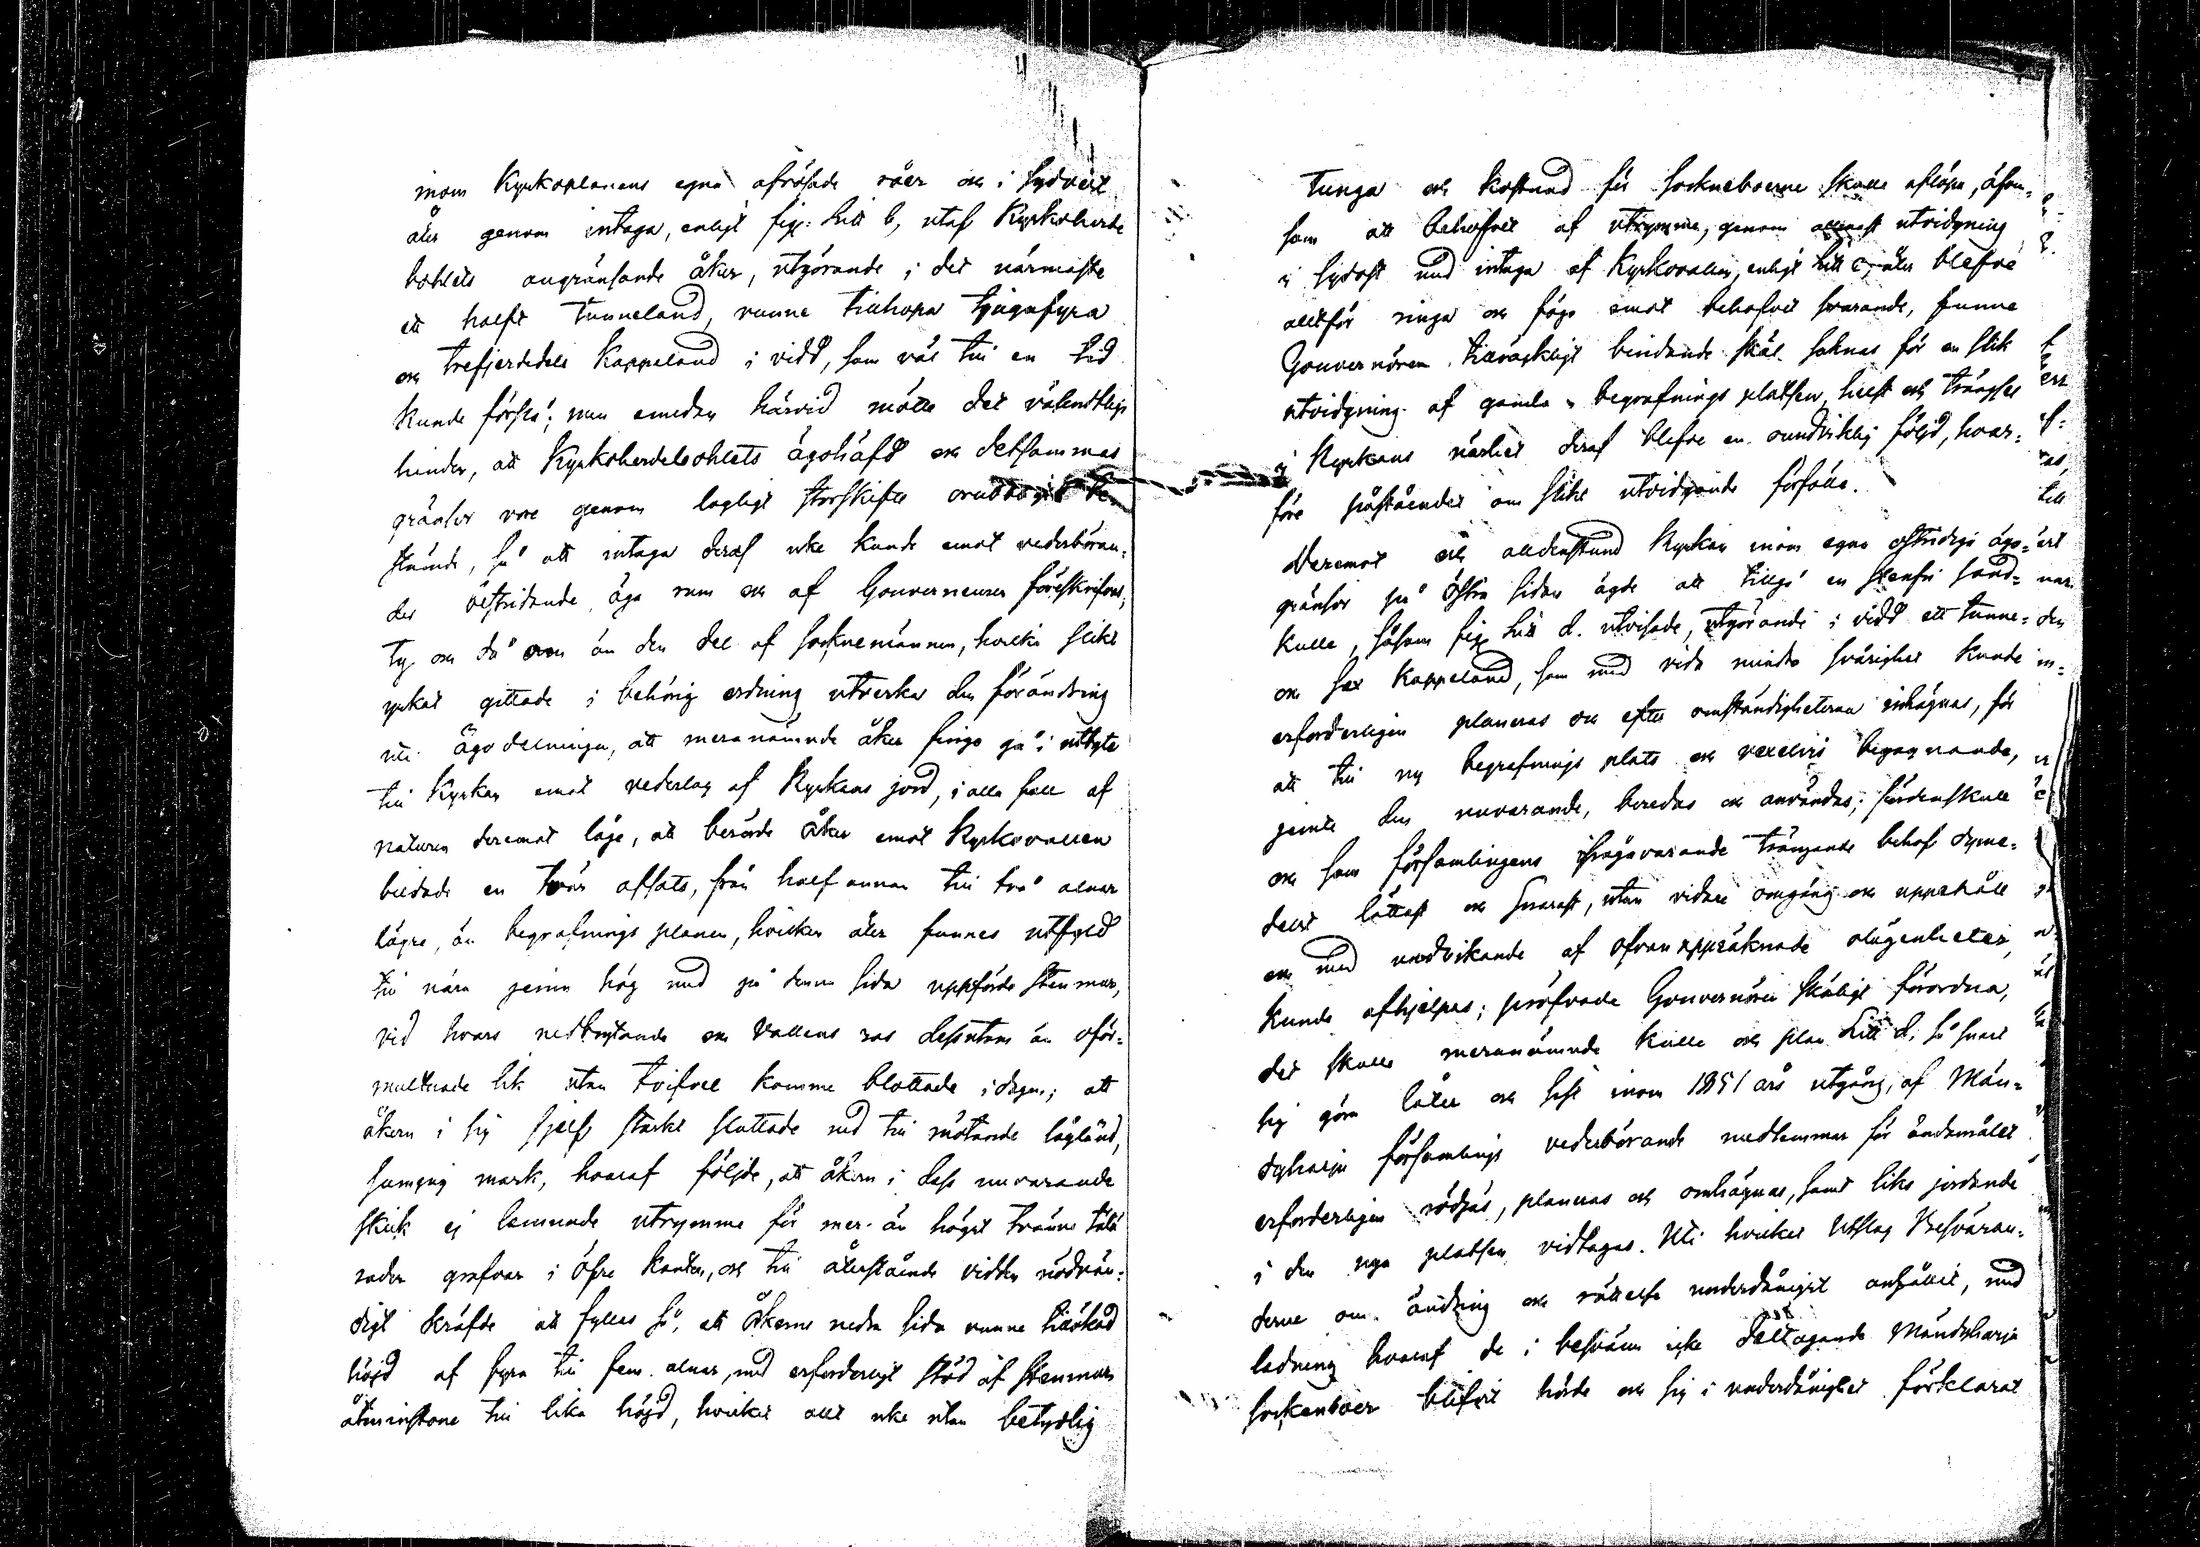 inom Kyrkoplanens egna afrösade råer och i sydvest
åter genom intaga, enligt fig: Litt b, utaf Kyrkoherde
bohlets angränsande åker, utgörande i det närmaste
ett halft Tunneland, vunne tillhopa tjugufyra
och trefjerdedels Kappeland i vidd, som väl till en tid
kunde förslå; men emedan härvid mötte det väsendtliga
hinder, att Kyrkoherdebohlets ägohäfd och detsammas
gränsor vore genom lagligt storskifte orubbeligt be-
stämde, så att intaga deraf icke kunde emot vederböran-
des bestridande äga rum och af Gouverneuren föreskrifvas,
ty och då än den del af socknemännen, hvilka slikt
yrkat gittade i behörig ordning utverka den förändring
uti ägodelningen, att meranämnde åker finge gå i utbyte
till Kyrkan emot vederlag af Kyrkans jord, i alla fall af
naturen deremot läge, att berörde åker emot Kyrkovallen
bildade en tvär afsats, från half annan till två alnar
lägre, än begrafnings planen, hvilken åter funnes utfyld
till nära jemn hög med på denna sida uppförde stenmur,
vid hvars nedbrytande och vallens ras dessutom än oför-
multnade lik utan tvifvel komme blottade i dagen; att
åkern i sig sjelf starkt sluttade ned till mötande lågländ,
sumpig mark, hvaraf följde, att åkern i dess nuvarande
skick ej lemnade utrymme för mer än högst tvänne
rader grafvar i öfre kanten, och till återstående vidden nödvän-
digt kräfde att fyllas så, att åkerns nedra sida vunne tillökad
höjd af fyra till fem alnar, med erforderligt stöd af stenmur
åtminstone till lika höjd, hvilket allt icke utan betydlig
Tunga och kostnad för sockneboerne skulle aflöpa, äfven-
som att behofvet af utrymme, genom allenast utvidgning
i sydost med intaga af Kyrkovallen, enligt Litt c, åter blefve
alltför ringa och föga emot behofvet svarande, funne
Gouvernören tillräckligt bindande skäl saknas för en slik
utvidgning af gamla begrafnings platsen, helst och trängsel
i Kyrkans närhet deraf blefve en oundviklig följd, hvar-
före påståendet om slikt utvidgande förfölle.
Deremot och alldenstund Kyrkan inom egna ostridiga ägo-
gränsor på östra sidan ägde att tillgå en stenfri sand-
kulle, såsom fig Litt d. utvisade, utgörande i vidd ett tunne-
och sex kappeland, som med vida mindre svårighet kunde
erforderligen planeras och efter omständigheterna inhägnas, för
att till ny begrafnings plats och vexelvis begagnande,
jemte den nuvarande, beredas och användas; fördenskull
och som församlingens ifrågavarande trängande behof dyme-
delst lättast och snarast, utan vidare omgång och uppehåll
och med undvikande af ofvanuppräknade olägenheter,
kunde afhjelpas; pröfvade Gouvernören skäligt förordna,
det skulle meranämnde kulle och plan Litt d. så snart
sig göra låter och sist inom 1851 års utgång, af Män-
dyharju församlings vederbörande medlemmar för ändamålet
erforderligen rödjas, planeras och omhägnas, samt liks jordande
i den nya platsen vidtagas. Uti hvilket Utslag Besväran-
derne om ändring och rättelse underdånigst anhållit, med
ledning hvaraf de i besvären icke deltagande Mändyharju
sockenboer blifvit hörde och sig i underdånighet förklarat